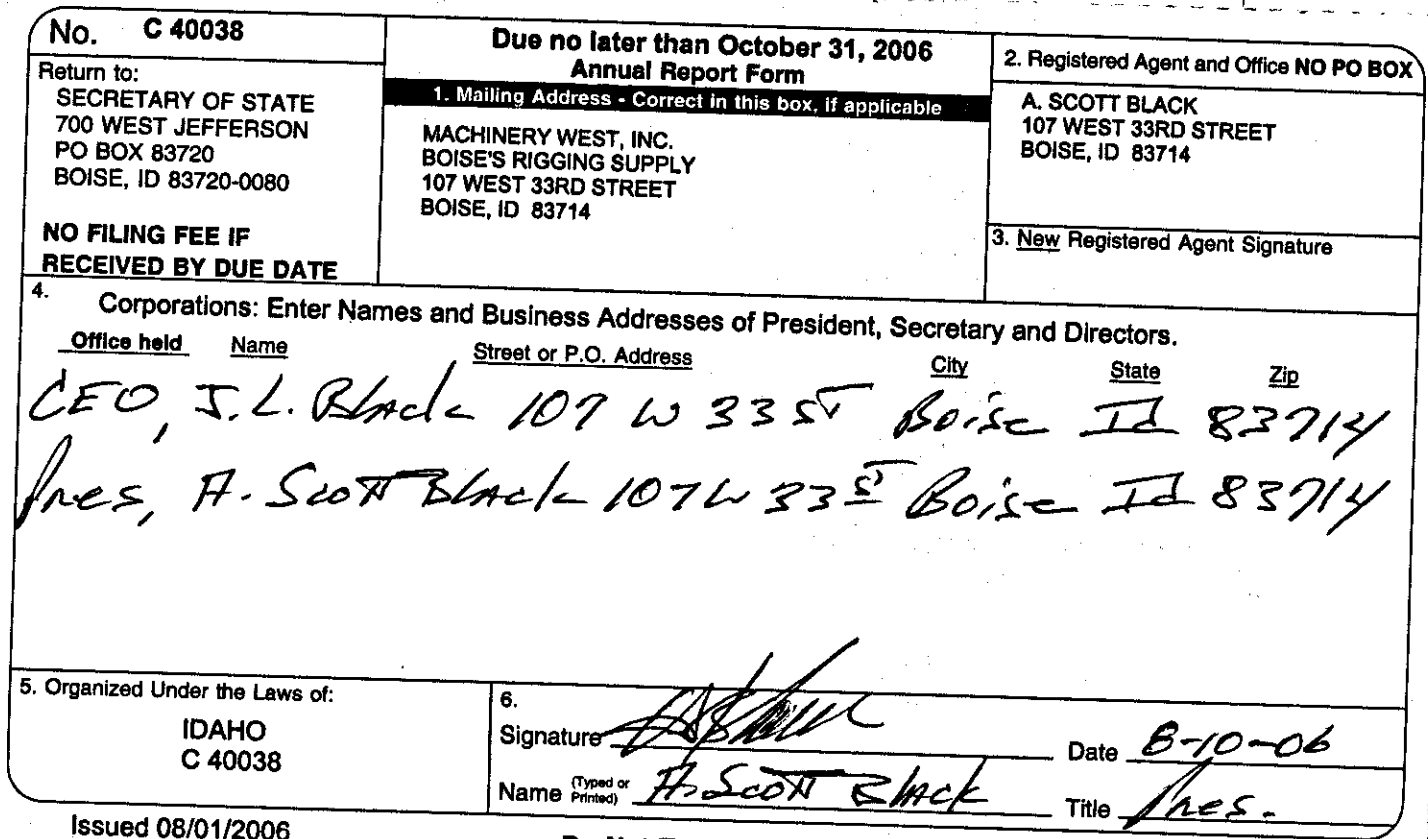 No. C 40038
Return to:
SECRETARY OF STATE
700 WEST JEFFERSON
PO BOX 83720
BOISE, ID 83720-0080
NO FILING FEE IF
RECEIVED BY DUE DATE
Due no later than October 31, 2006
Annual Report Form
1. Mailing Address - Correct in this box, if applicable
MACHINERY WEST, INC.
BOISE'S RIGGING SUPPLY
107 WEST 33RD STREET
BOISE, ID 83714
2. Registered Agent and Office NO PO BOX
A. SCOTT BLACK
107 WEST 33RD STREET
BOISE, ID 83714
3. New Registered Agent Signature
4. Corporations: Enter Names and Business Addresses of President, Secretary and Directors.
Office held Name Street or P.O. Address City State Zip
CEO, J.L. Black 107 W 33 ST Boise Id 83714
Pres, A. Scott Black 107 W 33 ST Boise Id 83714
5. Organized Under the Laws of:
IDAHO
C 40038
6.
Signature Date 8-10-06
Name (Typed or Printed) A. Scott Black Title Pres.
Issued 08/01/2006